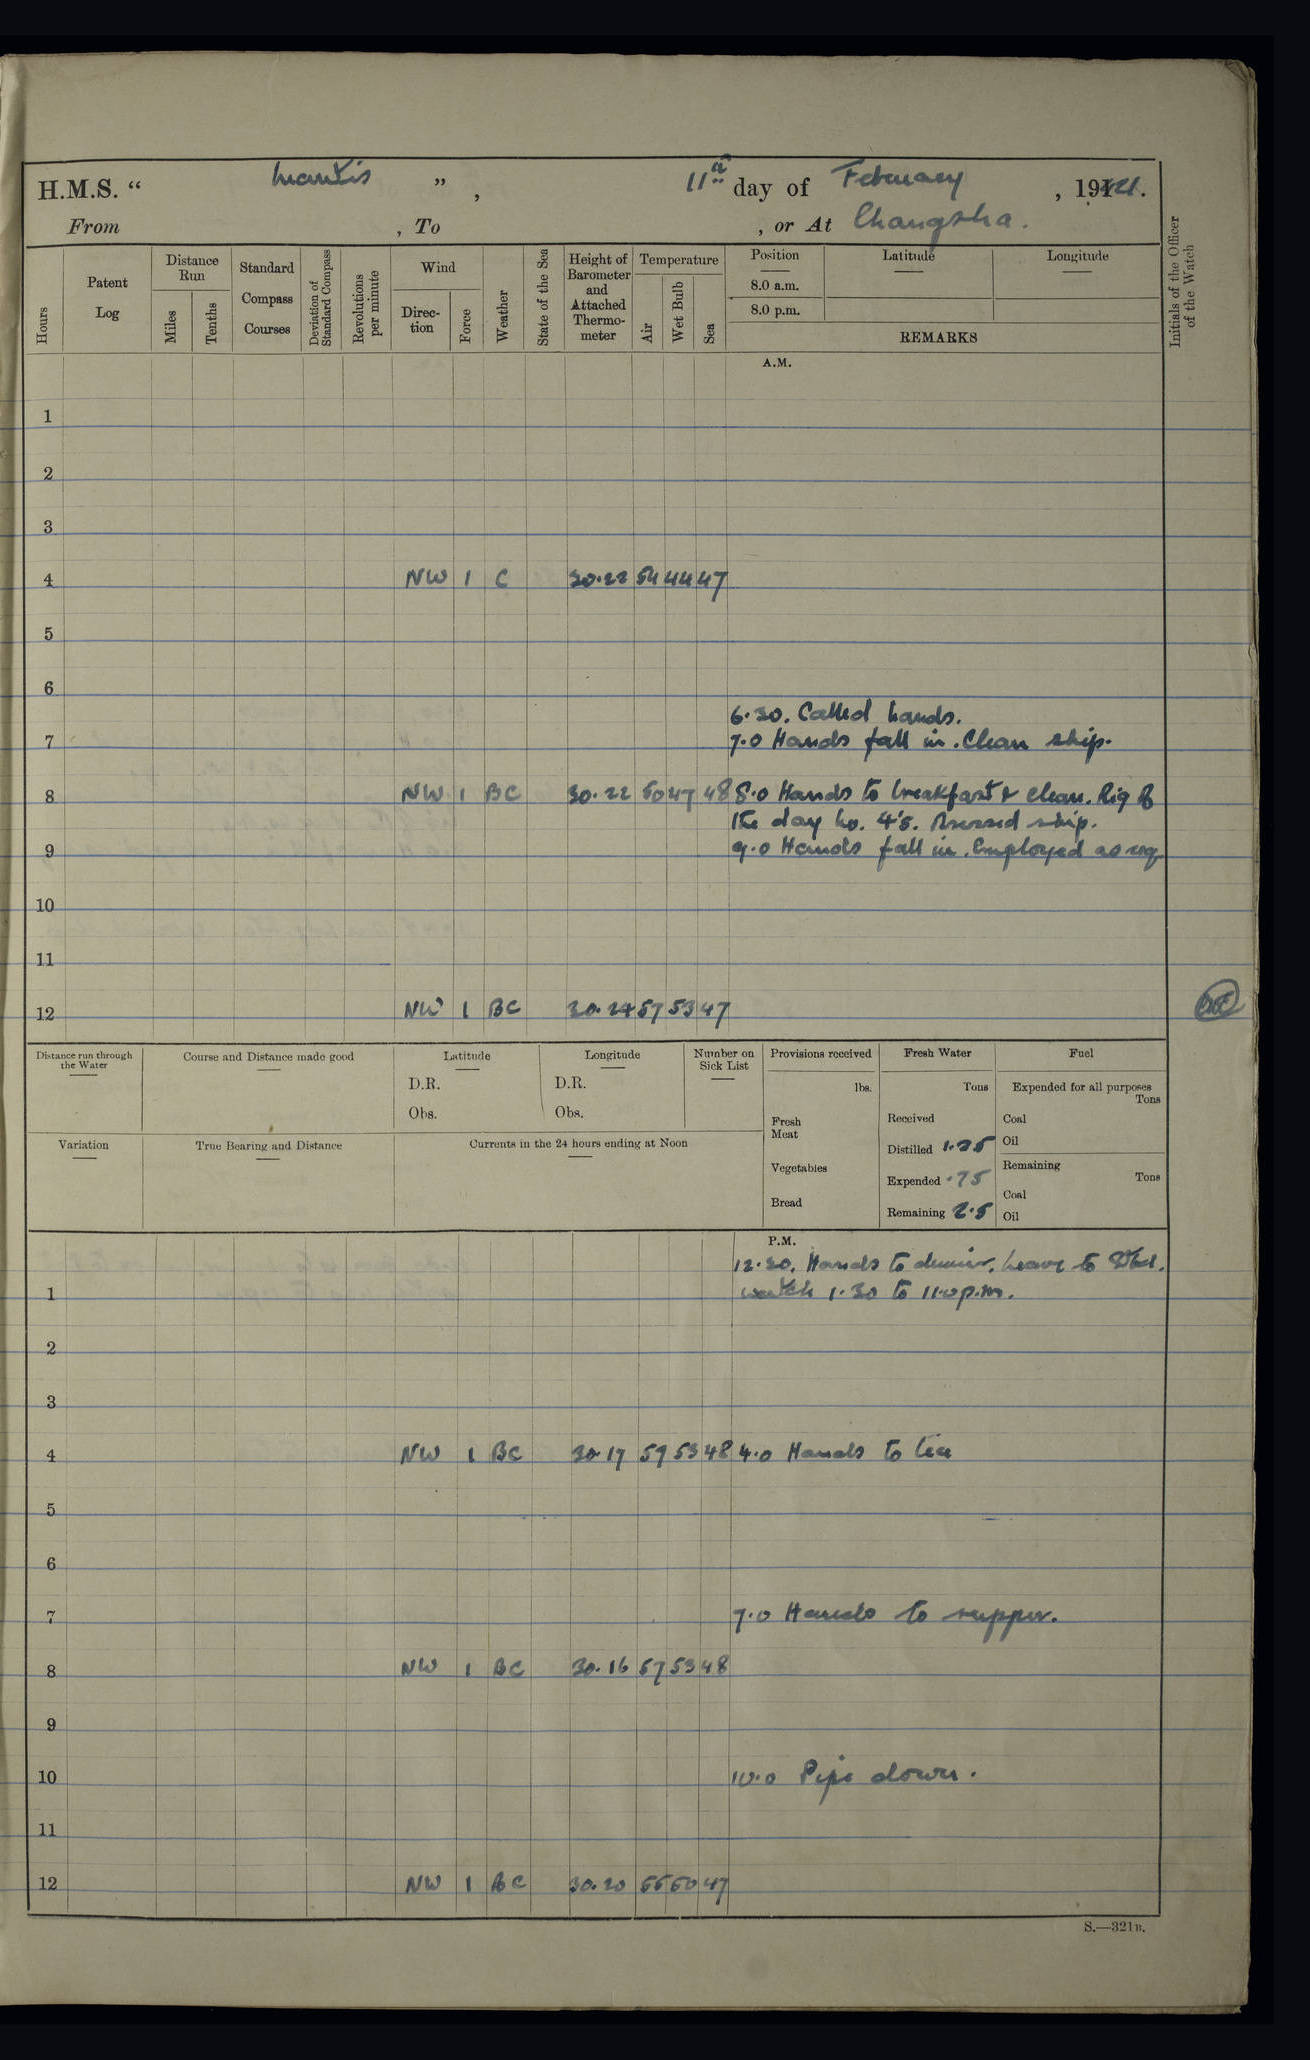 H.M.S. “ Mantis ” , 11th day of February , 1921.
From , To , or At Changsha.
Hours
Patent Log
Distance Run
Miles
Tenths
Standard Compass Courses
Deviation of Standard Compass
Revolutions per minute
Wind
Direc-tion
Force
Weather
State of the Sea
Height of Barometer and Attached Thermo-meter
Temperature
Air
Wet Bulb
Sea
Position
8.0 a.m.
8.0 p.m.
Latitude
Longitude
REMARKS
Initials of the Officer of the Watch
A.M.
1
2
3
4 NW 1 C 30.22 54 44 47
5
6
6.30. Called hands.
7 7.0 Hands fall in. Clean ship.
8 NW 1 BC 30.22 50 47 48 8.0 Hands to breakfast & clean. Rig of
the day No. 4's. Dressed ship.
9 9.0 Hands fall in. Employed as req
10
11
12 NW 1 BC 30.24 57 53 47
Distance run through the Water
Course and Distance made good
Latitude
D.R.
Obs.
Longitude
D.R.
Obs.
Number on Sick List
Provisions received
lbs.
Fresh Meat
Vegetables
Bread
Fresh Water
Tons
Received
Distilled 1.25
Expended .75
Remaining 2.5
Fuel
Expended for all purposes
Tons
Coal
Oil
Remaining
Tons
Coal
Oil
Variation
True Bearing and Distance
Currents in the 24 hours ending at Noon
P.M.
12.30. Hands to dinner. Leave to Stbd.
1 watch 1.30 to 11.0 p.m.
2
3
4 NW 1 BC 30.17 59 53 48 4.0 Hands to tea
5
6
7 7.0 Hands to supper.
8 NW 1 BC 30.16 57 53 48
9
10 10.0 Pipe down.
11
12 NW 1 BC 30.20 55 50 47
S.—321B.